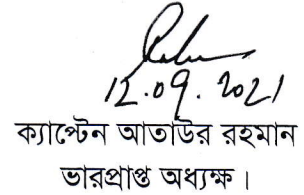 12.09.2021
ক্যাপ্টেন আতাউর রহমান
ভারপ্রাপ্ত অধ্যক্ষ।